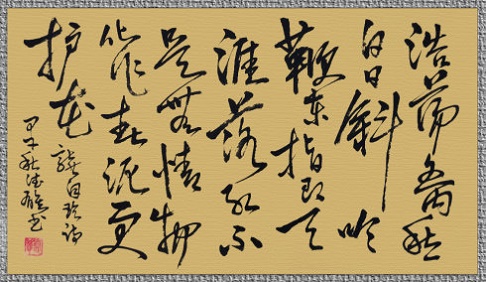 浩荡离愁
白日斜吟
鞭东指即天
涯落红不
是無情物
化作春泥更
护花
龚自珍诗
甲子秋书